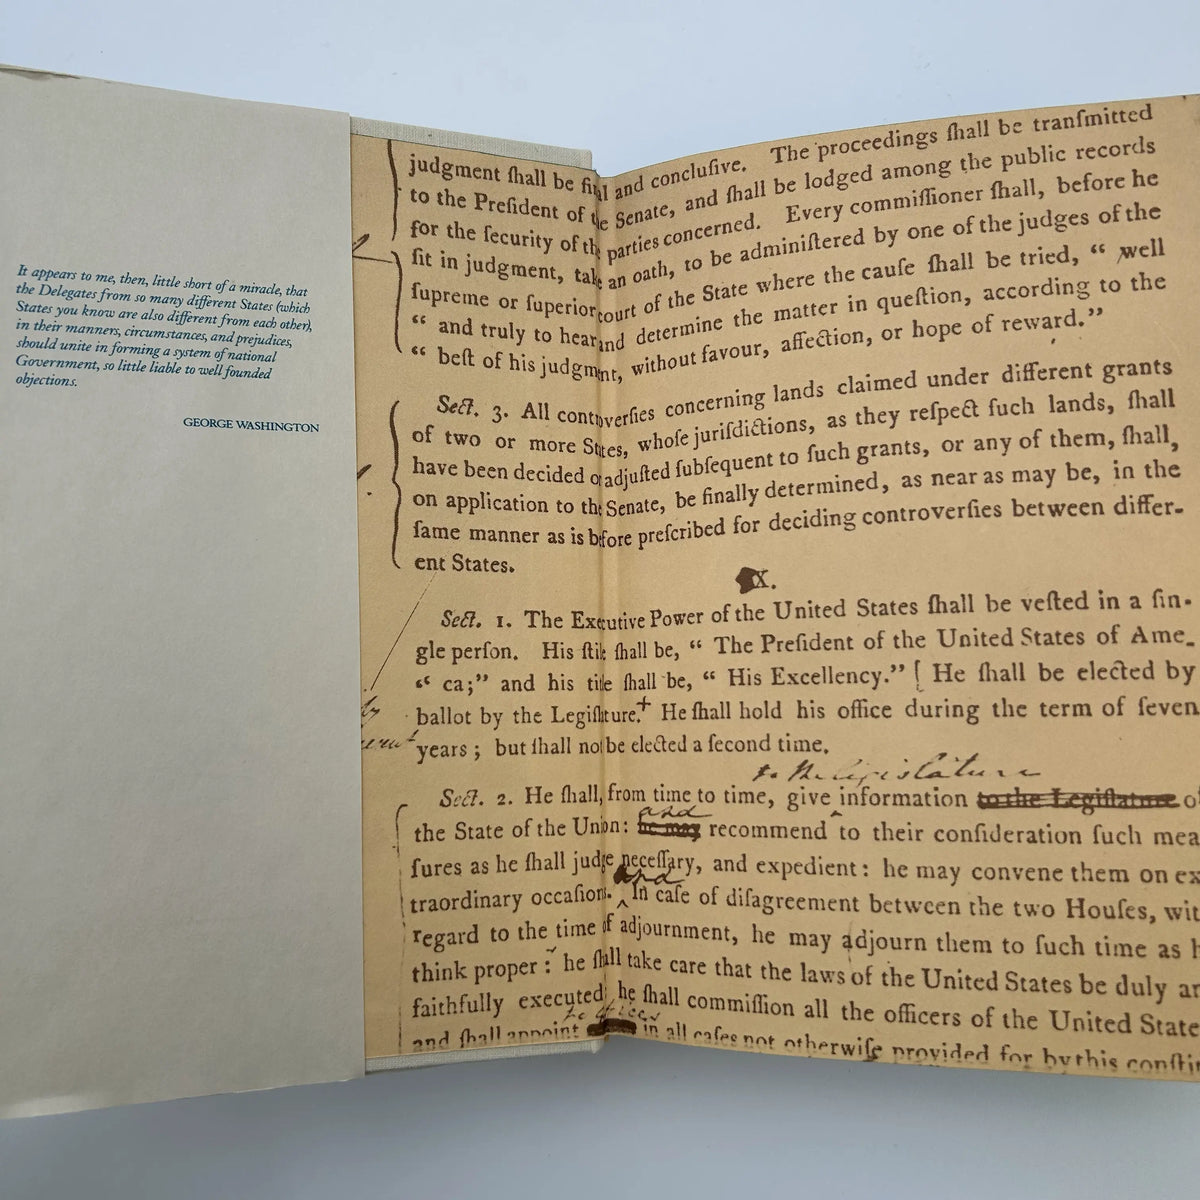 It appears to me, then, little short of a miracle, that
the Delegates from so many different States (which
States you know are also different from each other),
in their manners, circumstances, and prejudices,
should unite in forming a system of national
Government, so little liable to well founded
objections.
GEORGE WASHINGTON
judgment ſhall be final and concluſive. The proceedings ſhall be tranſmitted
to the Preſident of the Senate, and ſhall be lodged among the public records
for the ſecurity of the parties concerned. Every commiſſioner ſhall, before he
ſit in judgment, take an oath, to be adminiſtered by one of the judges of the
ſupreme or ſuperior court of the State where the cauſe ſhall be tried, “ well
“ and truly to hear and determine the matter in queſtion, according to the
“ beſt of his judgment, without favour, affection, or hope of reward.”
Sect. 3. All controverſies concerning lands claimed under different grants
of two or more States, whoſe juriſdictions, as they reſpect ſuch lands, ſhall
have been decided or adjuſted ſubſequent to ſuch grants, or any of them, ſhall,
on application to the Senate, be finally determined, as near as may be, in the
ſame manner as is before preſcribed for deciding controverſies between differ-
ent States.
X.
Sect. 1. The Executive Power of the United States ſhall be veſted in a ſin-
gle perſon. His ſtile ſhall be, “ The Preſident of the United States of Ame-
“ ca;” and his title ſhall be, “ His Excellency.” [ He ſhall be elected by
ballot by the Legiſlature.+ He ſhall hold his office during the term of ſeven
years ; but ſhall not be elected a ſecond time.
to the legislature
Sect. 2. He ſhall, from time to time, give information to the Legiſlature of
and
the State of the Union: he may recommend to their conſideration ſuch mea
ſures as he ſhall judge neceſſary, and expedient : he may convene them on ex
and
traordinary occaſions. In caſe of diſagreement between the two Houſes, wit
regard to the time of adjournment, he may adjourn them to ſuch time as h
think proper : he ſhall take care that the laws of the United States be duly an
faithfully executed he ſhall commiſſion all the officers of the United State
to offices
and ſhall appoint in all caſes not otherwiſe provided for by this conſti